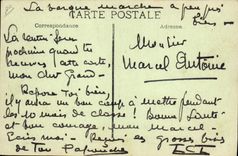 La barque marche à peu près
bien -
CARTE POSTALE
Correspondance
Adresse
La lettre sera
prochaine quand tu
recevras cette carte,
mon cher Grand -
Monsieur
Marcel Antoine
Repose toi bien,
il y aura un bon coup à mettre pendant
les 10 mois de classe ! Bonne santé
et bon courage, mon Marcel -
Ecris moi - Reçois les grosses bises
de Ton